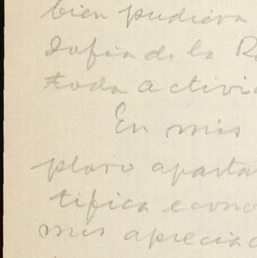 bien pudiera
dafia de la R
toda activi
En mis
plaro aparta
tifica econo
mis aprecia